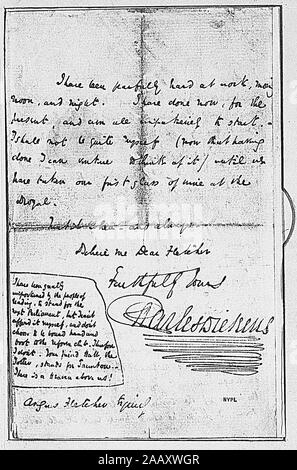 I have been fearfully hard at work, morn
noon, and night. I have done now, for the
present and am all impatience to start. –
I shall not be quite myself (now that having
done I can venture to think of it) until we
have taken our first glass of wine at the
Royal.
as always
Believe me Dear Fletcher
Faithfully Yours
Charles Dickens
I have been
by the people of
to stand for the
next Parliament, but I can't
afford it myself, and don't
choose to be bound hand and
foot to the Reform Club. Therefore
I don't. Your friend Hall, the
stands for Taunton. –
This is a
Angus Fletcher Esquire
NYPL
alamy
Image ID: 2AAXWGR
www.alamy.com